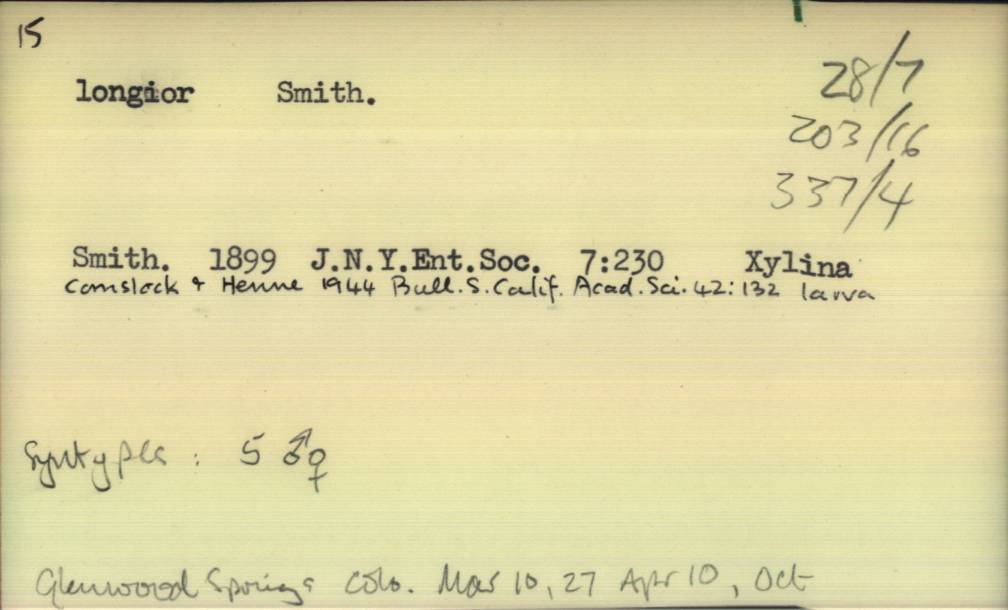 15
longior Smith.
28/7
203/16
337/4
Smith. 1899 J.N.Y.Ent.Soc. 7:230 Xylina
Comstock + Henne 1944 Bull. S. Calif. Acad. Sci. 42: 132 larva
Syntypes : 5 ♂♀
Glenwood Springs Colo. Mar 10, 27 Apr 10, Oct